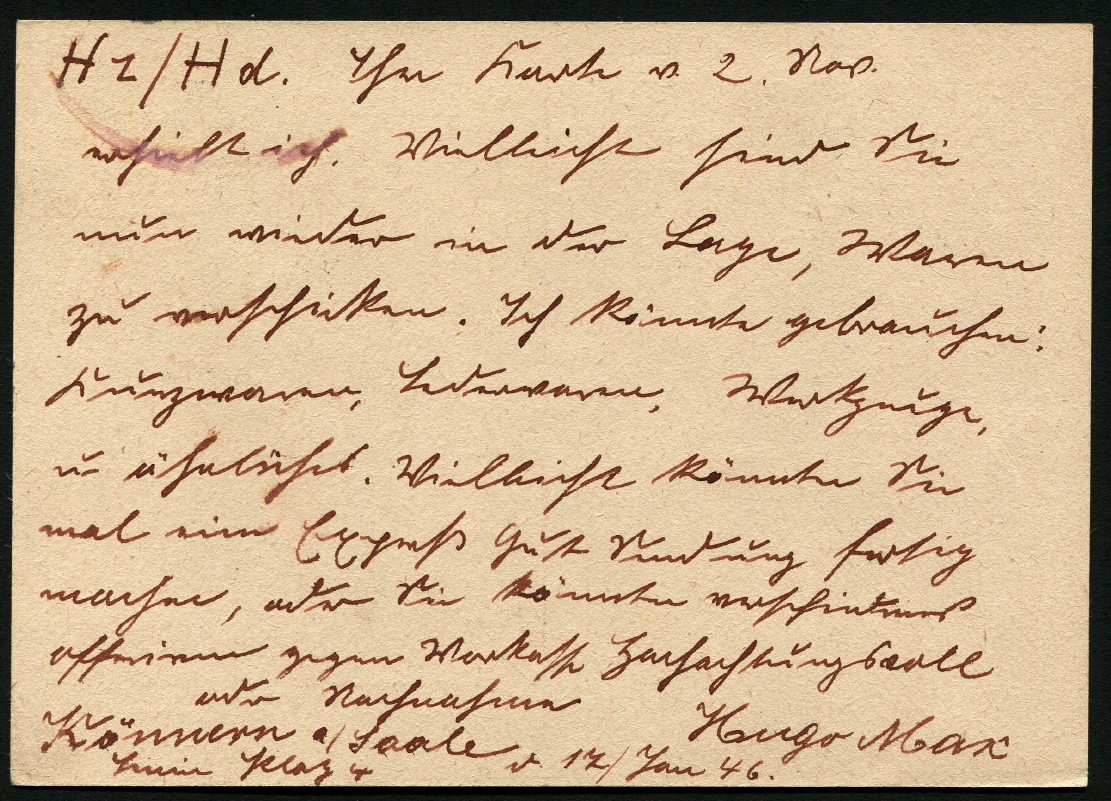 Hz/Hd. Ihre Karte v. 2. Nov.
erhielt ich. Vielleicht sind Sie
nun wieder in der Lage, Waren
zu verschicken. Ich könnte gebrauchen:
Kurzwaren, Lederwaren, Werkzeuge,
u ähnliches. Vielleicht könnten Sie
mal eine Expreß Gut Sendung fertig
machen, oder Sie könnten verschiedenes
offerieren gegen Vorkasse Hochachtungsvoll
oder Nachnahme
Hugo Max
Könnern a/Saale
Platz 4 d. 17/Jan 46.